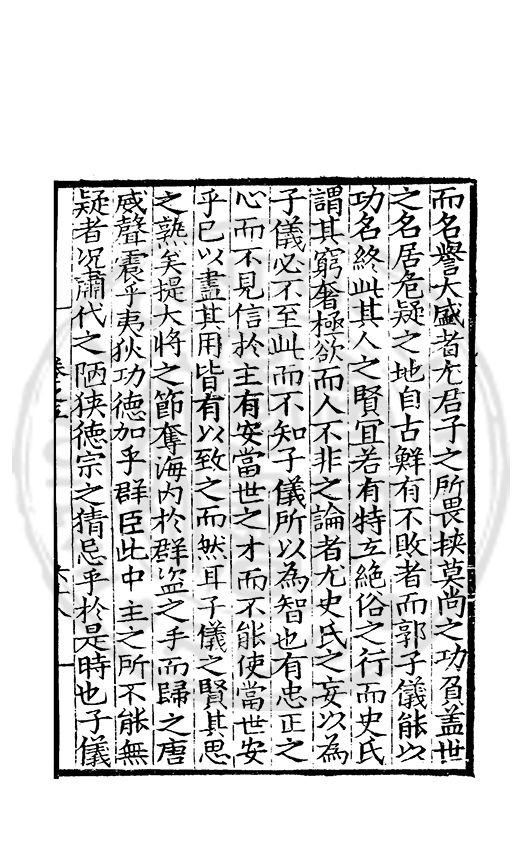 而名譽大盛者尤君子之所畏挾莫尚之功負盖世
之名居危疑之地自古鮮有不敗者而郭子儀能以
功名終此其人之賢宜若有特立絶俗之行而史氏
謂其窮奢極欲而人不非之論者尤史氏之妄以為
子儀必不至此而不知子儀所以為智也有忠正之
心而不見信於主有安當世之才而不能使當世安
乎已以盡其用皆有以致之而然耳子儀之賢其思
之熟矣提大將之節奪海内於群盗之手而歸之唐
威聲震乎夷狄功德加乎群臣此中主之所不能無
疑者况肅代之陋狹德宗之猜忌乎於是時也子儀